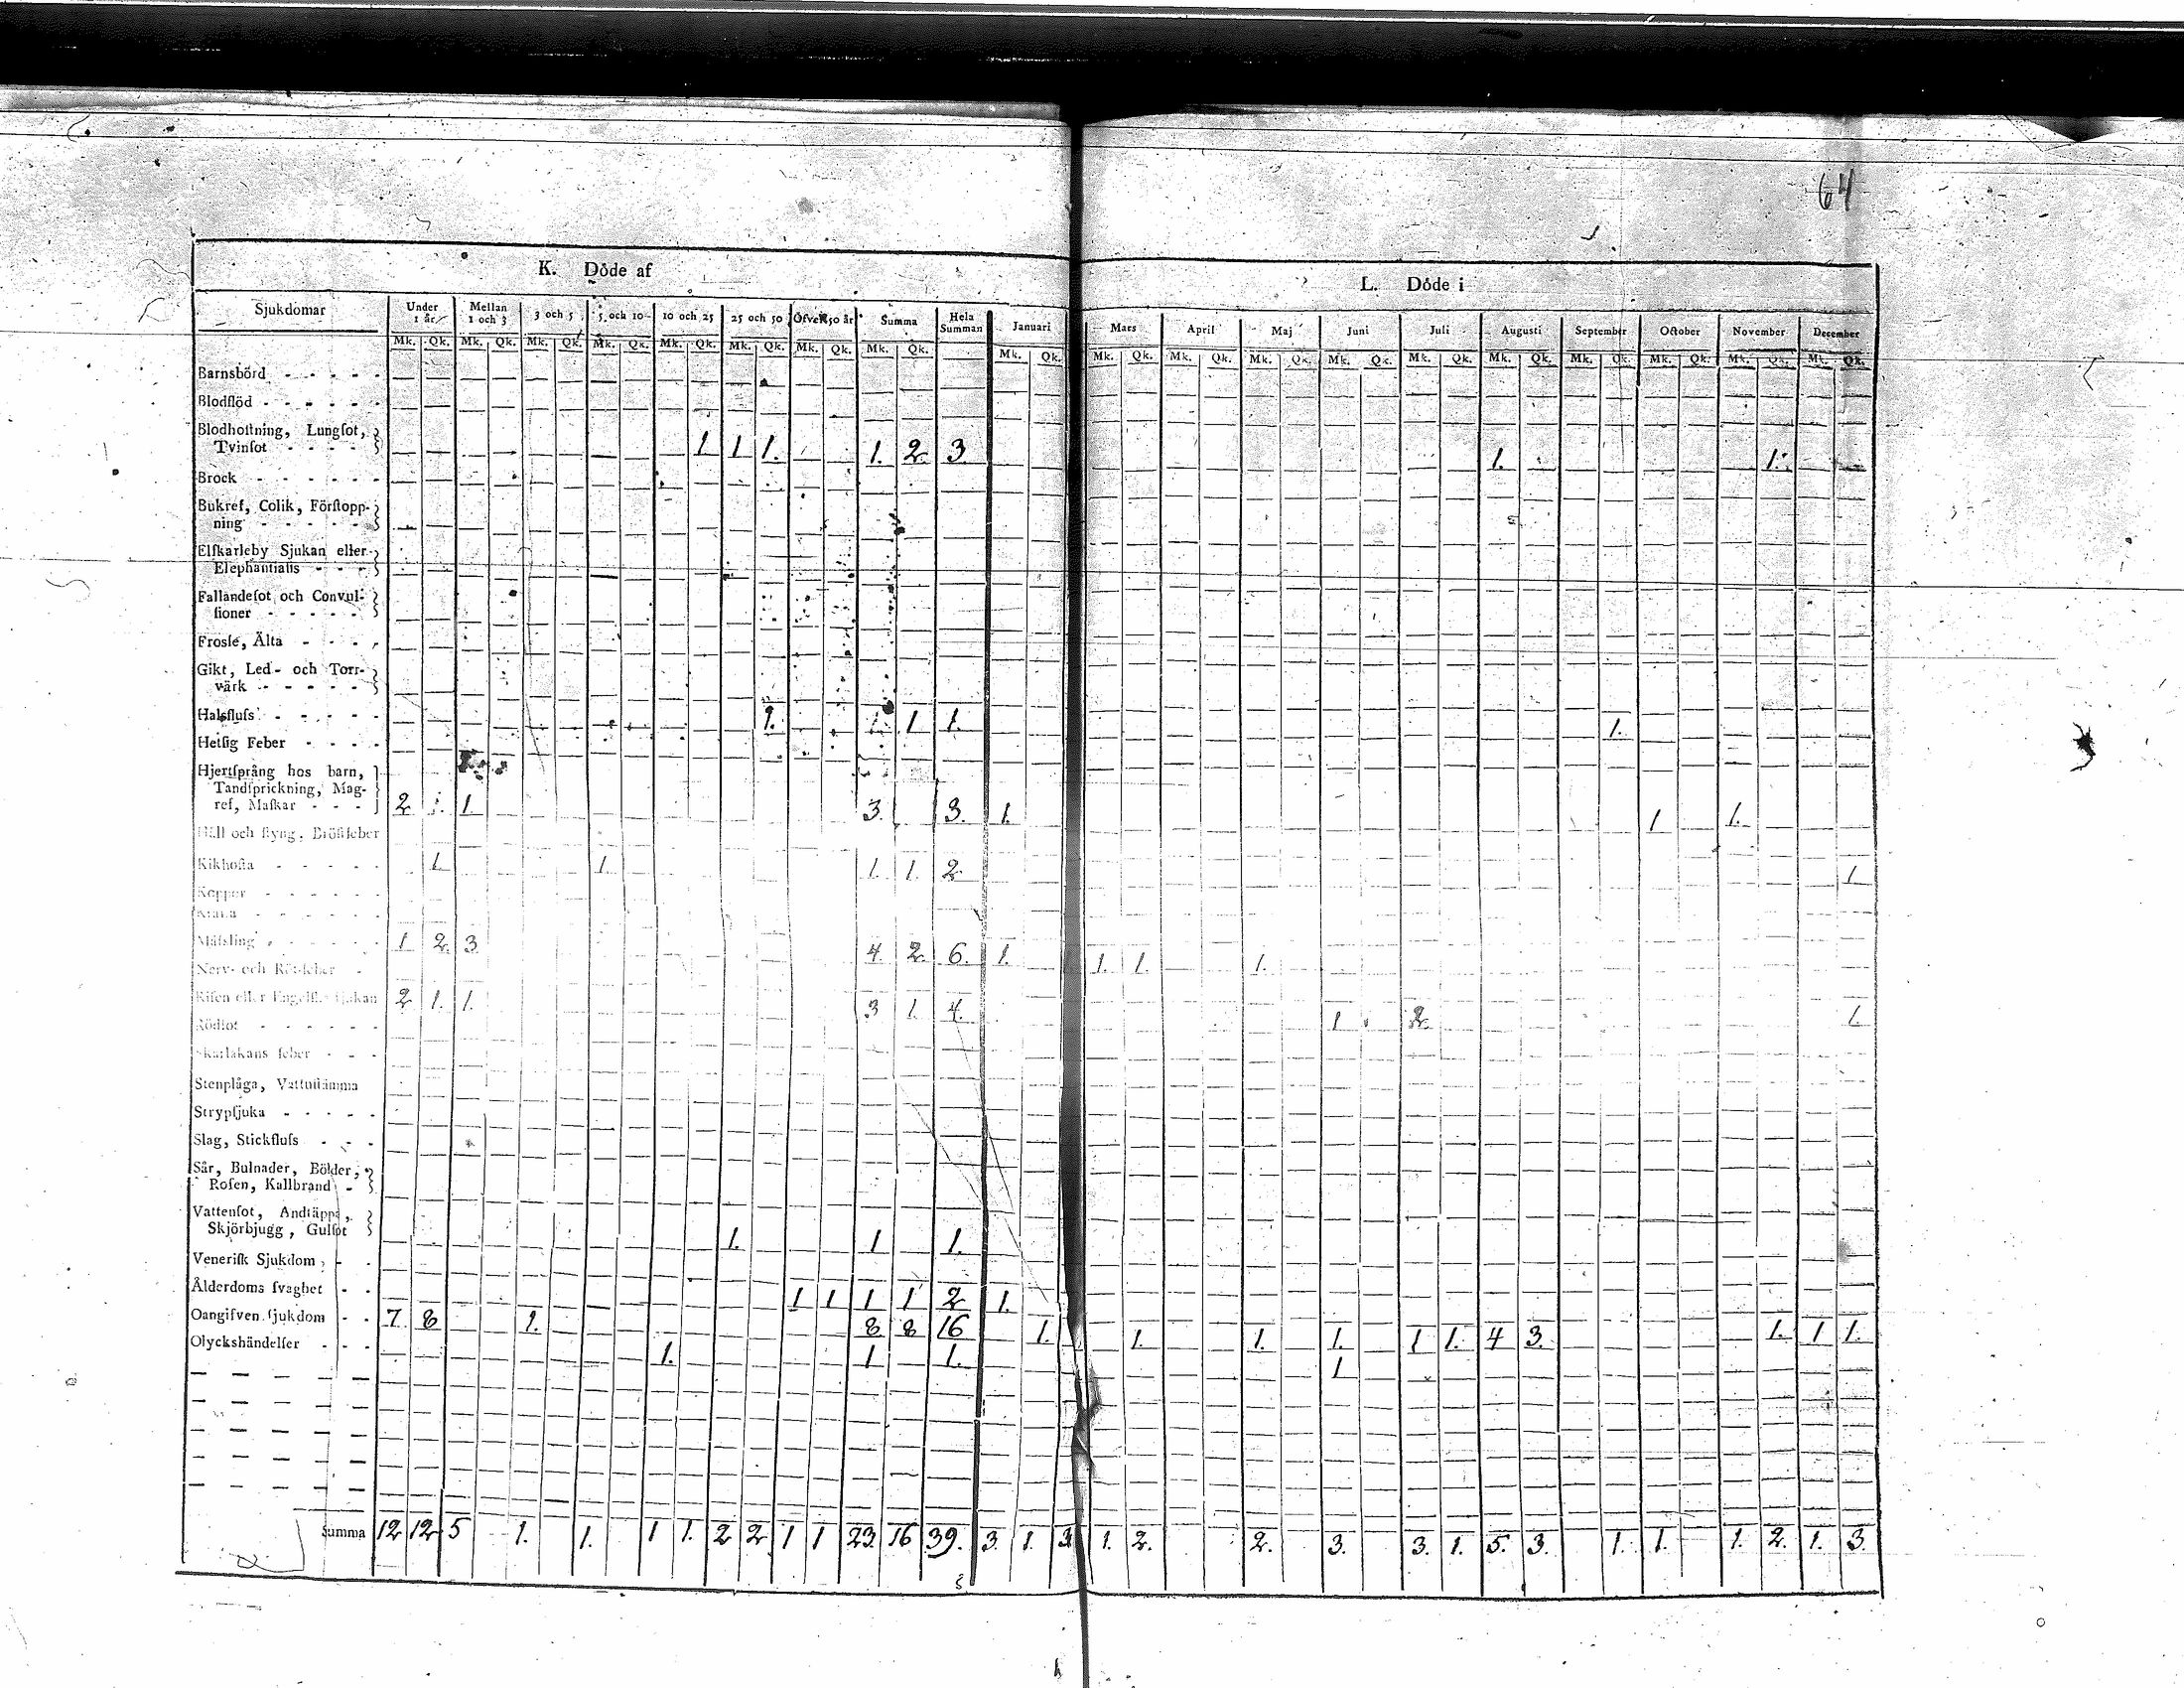 64
K. Döde af L. Döde i
Sjukdomar Under 1 år Mellan 1 och 3 3 och 5 5 och 10 10 och 25 25 och 50 Öfver 50 år Summa Hela Summan Januari Mars April Maj Juni Juli Augusti September October November December
Mk. Qk. Mk. Qk. Mk. Qk. Mk. Qk. Mk. Qk. Mk. Qk. Mk. Qk. Mk. Qk. Mk. Qk. Mk. Qk. Mk. Qk. Mk. Qk. Mk. Qk. Mk. Qk. Mk. Qk. Mk. Qk. Mk. Qk. Mk. Qk. Mk. Qk.
Barnsbörd
Blodflöd
Blodhoſtning, Lungſot,
Tvinſot 1 1 1. 1. 2. 3. 1. 1.
Brock
Bukref, Colik, Förſtopp-
ning
Elſkarleby Sjukan eller
Elephantiaſis
Fallandeſot och Convul-
ſioner
Froſſe, Älta
Gikt, Led- och Torr-
värk
Halsfluſs 1. 1 1. 1.
Hetſig Feber
Hjertſprång hos barn,
Tandſprickning, Mag-
ref, Maſkar 2 1. 3. 3. 1. 1 1.
Håll och ſtyng, Bröſtfeber
Kikhoſta 1. 1. 1. 1. 2. 1
Koppor
Mäſsling 1 2. 3 4. 2. 6. 1. 1. 1. 1.
Nerv- och Rötfeber
Riſen eller Engelſke ſjukan 2 1. 1. 3 1. 4. 1 2. 1.
Rödſot
Skarlakans feber
Stenplåga, Vattuſtämma
Strypſjuka
Slag, Stickfluſs
Sår, Bulnader, Bölder,
Roſen, Kallbrand
Vattenſot, Andtäppa,
Skjörbjugg, Gulſot 1. 1 1.
Veneriſk Sjukdom
Ålderdoms ſvaghet 1 1 1 1 2 1.
Oangifven ſjukdom 7. 8 1. 8 8 16 1. 1. 1. 1. 1 1. 4 3. 1. 1 1.
Olyckshändelſer 1. 1 1. 1
Summa 12 12 5 1. 1. 1 1. 2 2 1 1 23. 16 39. 3. 1. 3 1. 2. 2. 3. 3. 1. 5. 3. 1. 1. 1. 2. 1. 3.